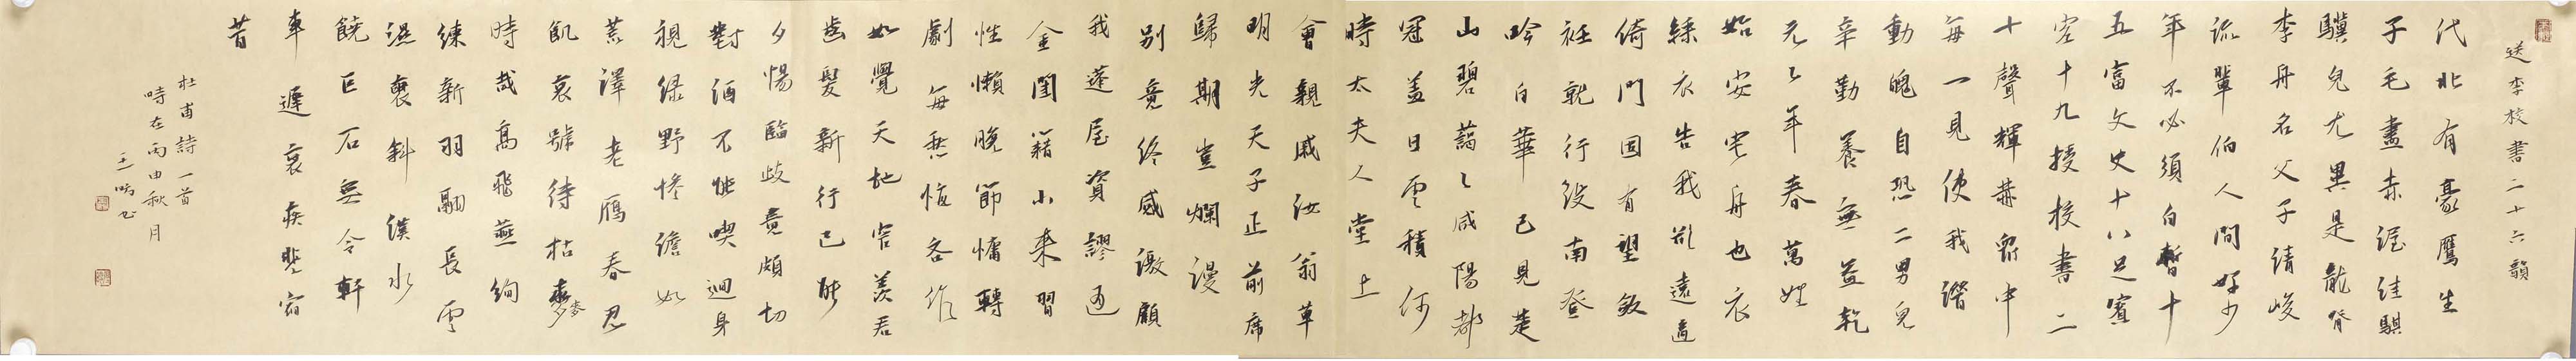 送李校書二十六韻
代北有豪鷹生
子毛盡赤渥洼騏
驥兒尤異是龍脊
李舟名父子清峻
流輩伯人間好少
年不必須白晳十
五富文史十八足賓
客十九授校書二
十聲輝赫眾中
每一見使我潛
動魄自恐二男兒
辛勤養無益乾
元々年春萬姓
始安宅舟也衣
綵衣告我欲遠適
倚門固有望斂
衽就行役南登
吟白華已見楚
山碧藹々咸陽都
冠蓋日雲積何
時太夫人堂上
會親戚汝翁草
明光天子正前席
歸期豈爛漫
別意終感激顧
我蓬屋資謬通
金閨籍小來習
性懶晚節慵轉
劇每愁悔吝作
如覺天地窄羨君
齒髮新行己能
夕惕臨歧意頗切
對酒不能喫迴身
視綠野慘澹如
荒澤老鴈春忍
飢哀號待枯麥
時哉高飛燕絢
練新羽翮長雲
濕褒斜漢水
饒巨石無令軒
車遲衰疾悲宿
昔
杜甫詩一首
時在丙申秋月
王